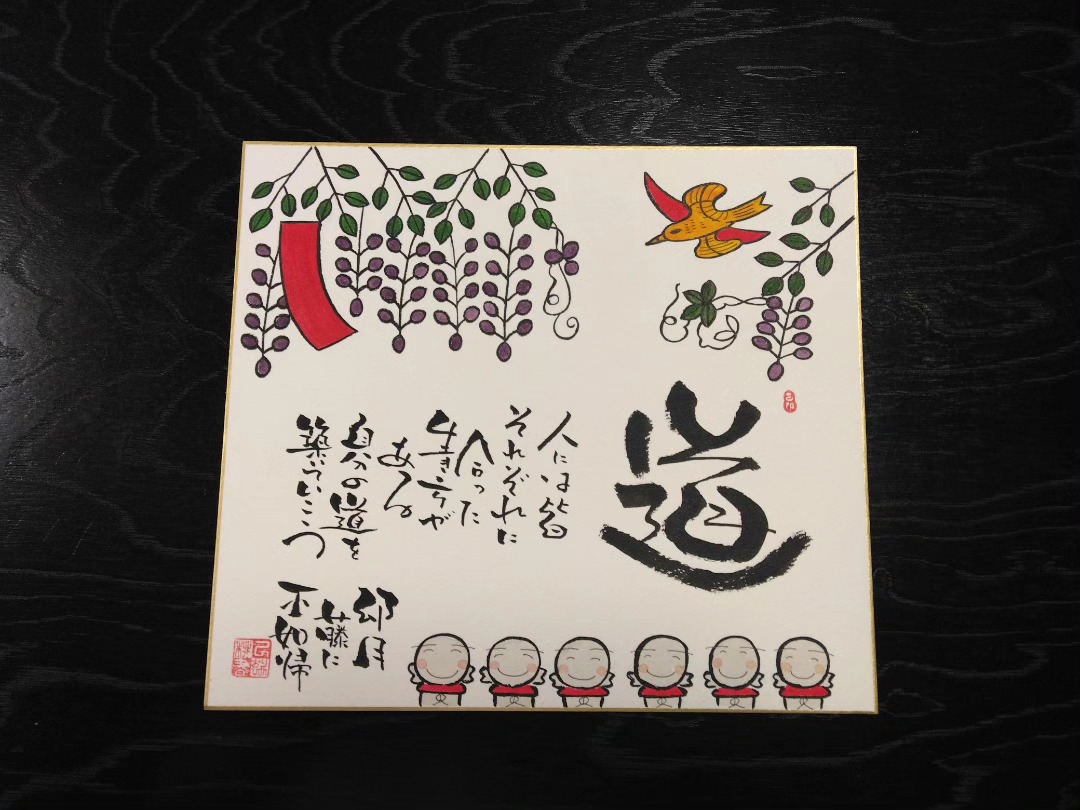 道
人には皆
それぞれに
合った
生き方が
ある
自分の道を
築いていこう
卯月
藤に
不如帰